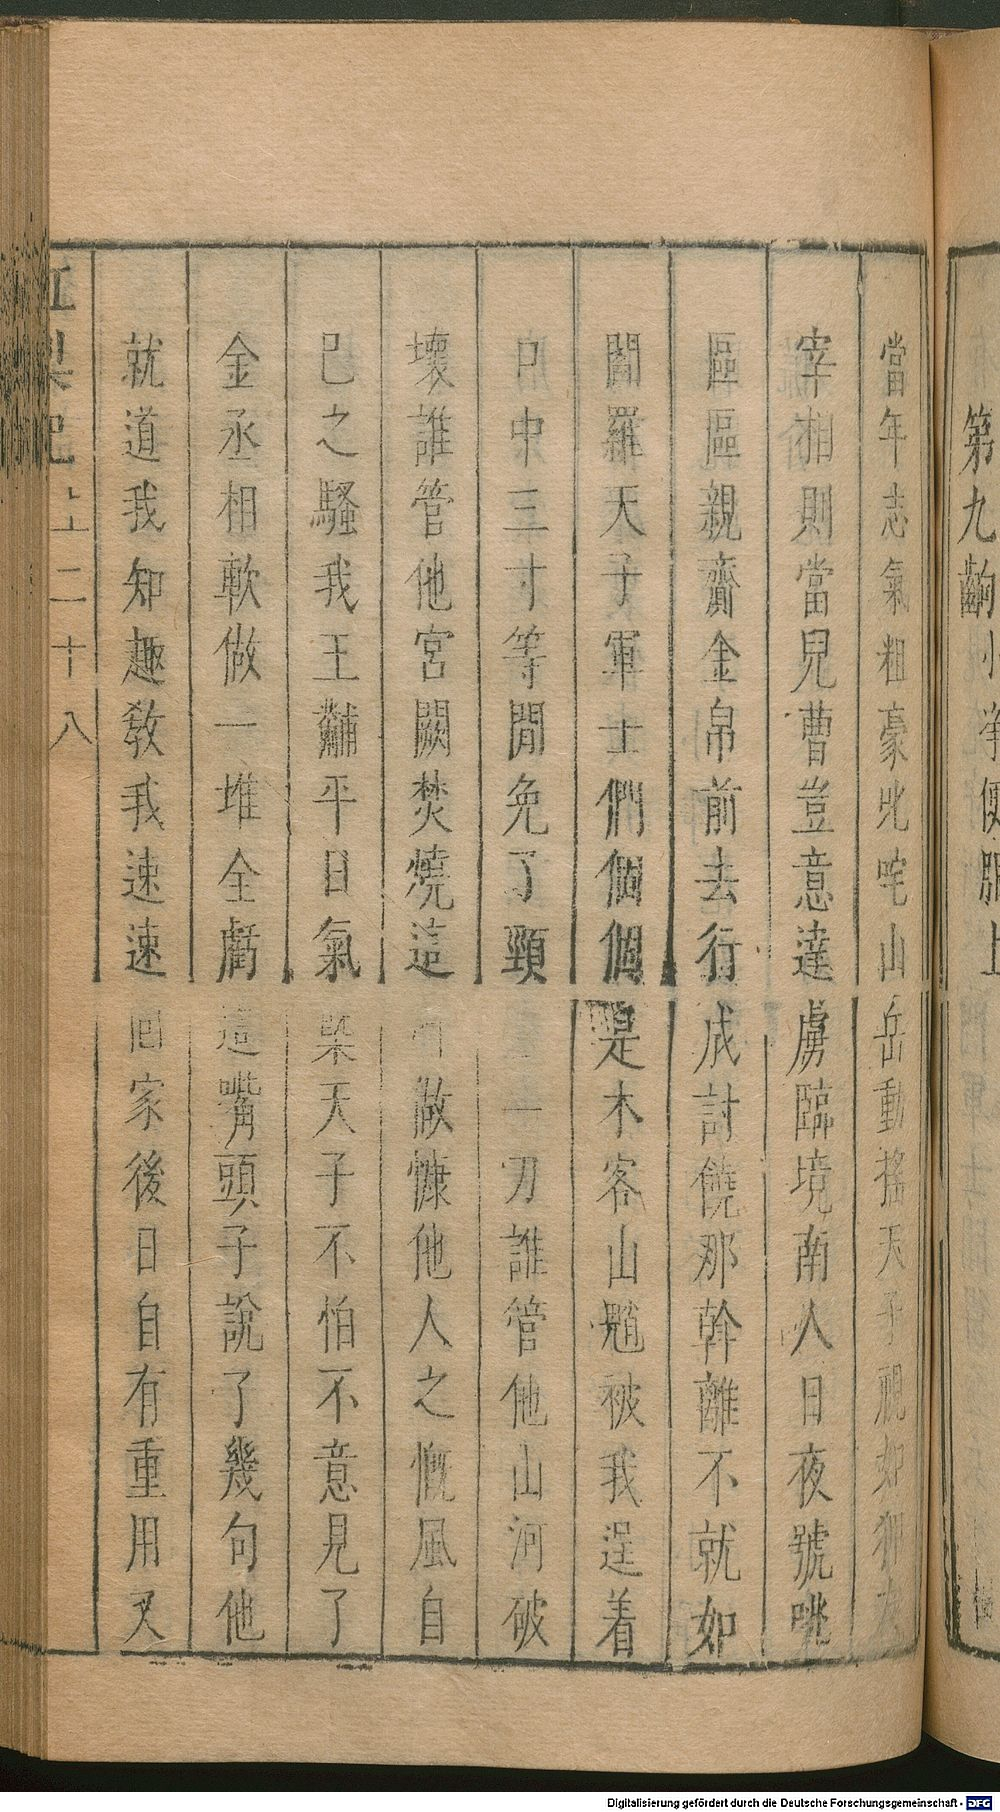 第九齣小淨便服上
當年志氣粗豪叱咤山岳動搖天子視如
宰相則當兒曹豈意達虜臨境南人日夜號咷
區區親齎金帛前去行成討饒那幹離不就如
閻羅天子軍士們個個是木客山魈被我逞着
口中三寸等閒免了頸一刀誰管他山河破
壞誰管他宮闕焚燒這做慷他人之慨風自
己之騷我王黼平日氣槩天子不怕不意見了
金丞相軟做一堆全虧這嘴頭子說了幾句他
就道我知趣教我速速回家後日自有重用又
紅梨記 上 二十八
Digitalisierung gefördert durch die Deutsche Forschungsgemeinschaft - DFG